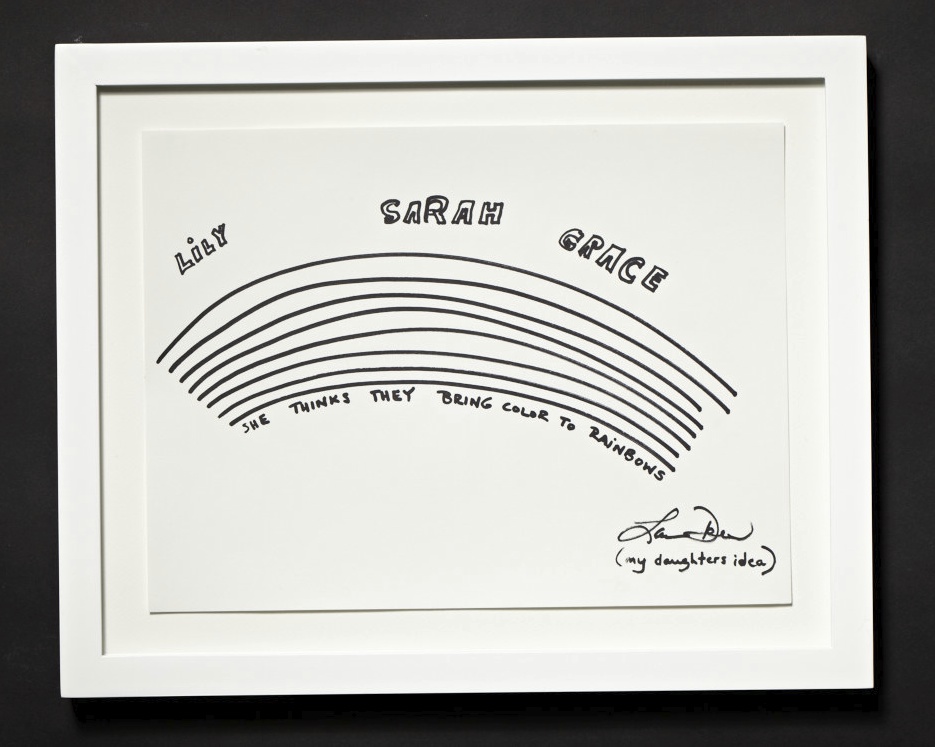 LiLY
SARAH
GRACE
SHE THINKS THEY BRING COLOR TO RAiNBOWS
(my daughters idea)